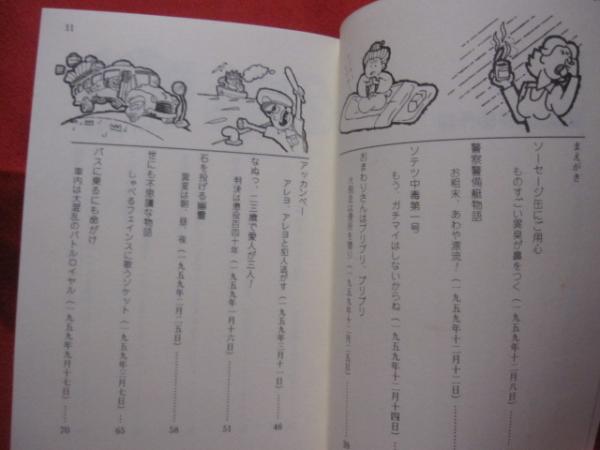 まえがき
ソーセージ缶にご用心
ものすごい異臭が鼻をつく(一九五九年十二月八日)……
警察警備艇物語
お粗末、あわや漂流!(一九五九年十二月十二日)……
ソテツ中毒第一号
もう、ガチマイはしないからね(一九五九年十二月十四日)……
おまわりさんはプリプリ、プリプリ
11
アッカンベー
アレヨ、アレヨと犯人逃がす(一九五九年三月十一日)……
46
なぬっ、二三歳で愛人が三人!
判決は懲役百四十年(一九五九年一月十六日)……
51
石を投げる幽霊
異変は朝、昼、夜(一九五九年二月二五日)……
58
世にも不思議な物語
しゃべるフェインスに歌うソケット(一九五九年三月七日)……
65
バスに乗るにも命がけ
車内は大混乱のバトルロイヤル(一九五九年九月十七日)……
70